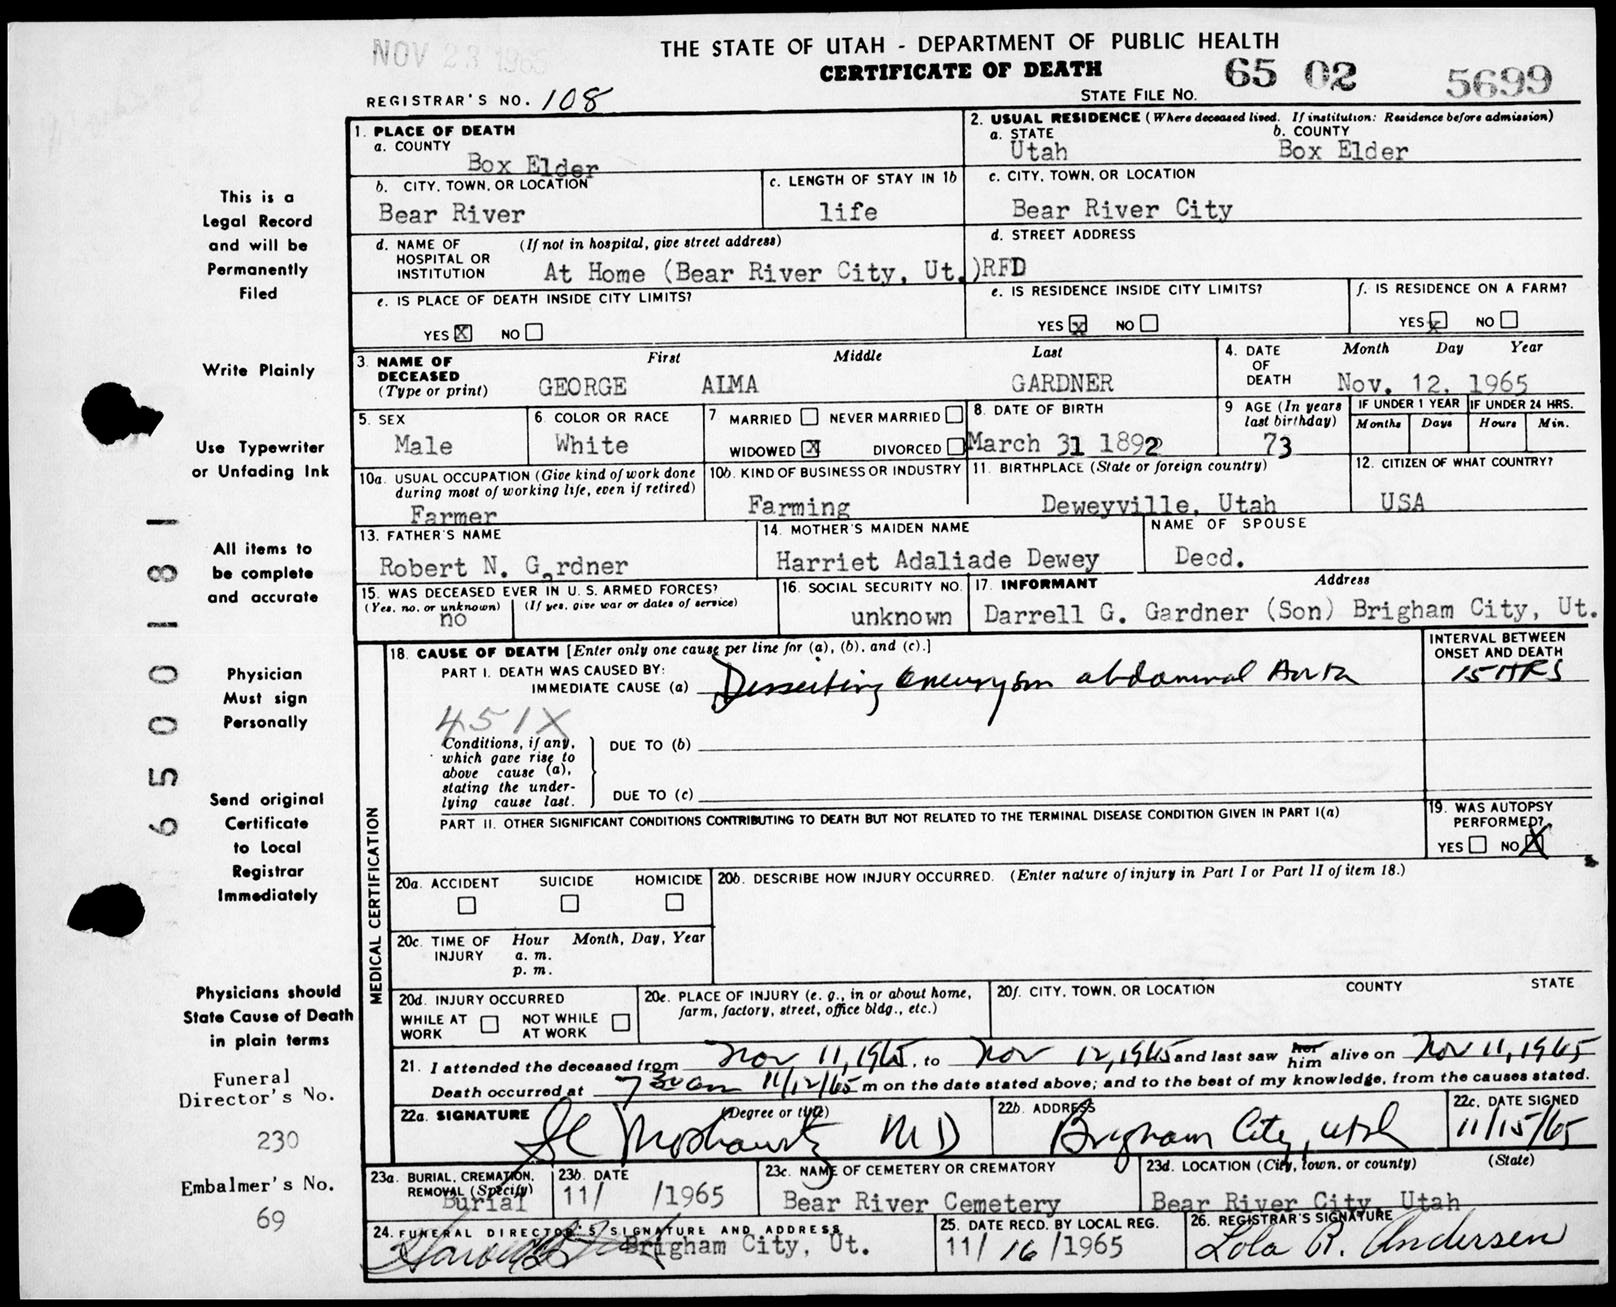 NOV 23 1965
THE STATE OF UTAH - DEPARTMENT OF PUBLIC HEALTH
CERTIFICATE OF DEATH
65 02 5699
REGISTRAR'S NO. 108
STATE FILE NO.
1. PLACE OF DEATH
a. COUNTY
Box Elder
2. USUAL RESIDENCE (Where deceased lived. If institution: Residence before admission)
a. STATE
Utah
b. COUNTY
Box Elder
b. CITY, TOWN, OR LOCATION
Bear River
c. LENGTH OF STAY IN 1b
life
c. CITY, TOWN, OR LOCATION
Bear River City
d. NAME OF HOSPITAL OR INSTITUTION
(If not in hospital, give street address)
At Home (Bear River City, Ut.)
d. STREET ADDRESS
RFD
e. IS PLACE OF DEATH INSIDE CITY LIMITS?
YES X NO
e. IS RESIDENCE INSIDE CITY LIMITS?
YES X NO
f. IS RESIDENCE ON A FARM?
YES X NO
3. NAME OF DECEASED
(Type or print)
First Middle Last
GEORGE ALMA GARDNER
4. DATE OF DEATH
Month Day Year
Nov. 12. 1965
5. SEX
Male
6 COLOR OR RACE
White
7 MARRIED NEVER MARRIED
WIDOWED X DIVORCED
8. DATE OF BIRTH
March 31 1892
9 AGE (In years last birthday)
73
IF UNDER 1 YEAR
Months Days
IF UNDER 24 HRS.
Hours Min.
10a. USUAL OCCUPATION (Give kind of work done during most of working life, even if retired)
Farmer
10b. KIND OF BUSINESS OR INDUSTRY
Farming
11. BIRTHPLACE (State or foreign country)
Deweyville, Utah
12. CITIZEN OF WHAT COUNTRY?
USA
13. FATHER'S NAME
Robert N. Gardner
14. MOTHER'S MAIDEN NAME
Harriet Adaliade Dewey
NAME OF SPOUSE
Decd.
15. WAS DECEASED EVER IN U. S. ARMED FORCES?
(Yes, no. or unknown) (If yes, give war or dates of service)
no
16. SOCIAL SECURITY NO.
unknown
17. INFORMANT Address
Darrell G. Gardner (Son) Brigham City, Ut.
MEDICAL CERTIFICATION
18. CAUSE OF DEATH [Enter only one cause per line for (a), (b), and (c).]
INTERVAL BETWEEN ONSET AND DEATH
PART I. DEATH WAS CAUSED BY:
IMMEDIATE CAUSE (a) Dissecting aneurysm abdominal Aorta
15 HRS
451X
Conditions, if any, which gave rise to above cause (a), stating the under-lying cause last.
DUE TO (b)
DUE TO (c)
PART II. OTHER SIGNIFICANT CONDITIONS CONTRIBUTING TO DEATH BUT NOT RELATED TO THE TERMINAL DISEASE CONDITION GIVEN IN PART I(a)
19. WAS AUTOPSY PERFORMED?
YES NO X
20a. ACCIDENT SUICIDE HOMICIDE
20b. DESCRIBE HOW INJURY OCCURRED. (Enter nature of injury in Part I or Part II of item 18.)
20c. TIME OF INJURY
Hour Month, Day, Year
a. m.
p. m.
20d. INJURY OCCURRED
WHILE AT WORK NOT WHILE AT WORK
20e. PLACE OF INJURY (e. g., in or about home, farm, factory, street, office bldg., etc.)
20f. CITY, TOWN, OR LOCATION COUNTY STATE
21. I attended the deceased from Nov 11, 1965, to Nov 12, 1965 and last saw her him alive on Nov 11, 1965
Death occurred at 7 30 am 11/12/65 m on the date stated above; and to the best of my knowledge, from the causes stated.
22a. SIGNATURE (Degree or title)
MD
22b. ADDRESS
Brigham City, Utah
22c. DATE SIGNED
11/15/65
23a. BURIAL, CREMATION, REMOVAL (Specify)
Burial
23b. DATE
11/ /1965
23c. NAME OF CEMETERY OR CREMATORY
Bear River Cemetery
23d. LOCATION (City, town, or county) (State)
Bear River City, Utah
24. FUNERAL DIRECTOR'S SIGNATURE AND ADDRESS
Brigham City, Ut.
25. DATE RECD. BY LOCAL REG.
11/ 16 /1965
26. REGISTRAR'S SIGNATURE
Lola R. Andersen
This is a
Legal Record
and will be
Permanently
Filed
Write Plainly
Use Typewriter
or Unfading Ink
All items to
be complete
and accurate
Physician
Must sign
Personally
Send original
Certificate
to Local
Registrar
Immediately
Physicians should
State Cause of Death
in plain terms
Funeral
Director's No.
230
Embalmer's No.
69
6 5 0 0 1 8 1